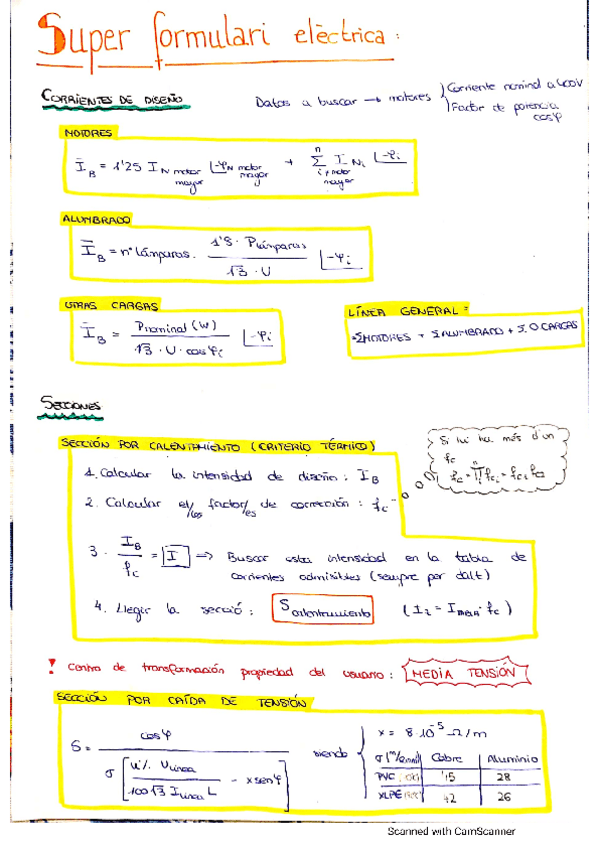 Super formulari elèctrica:
CORRIENTES DE DISEÑO
Datos a buscar → motores
Corriente nominal a 400V
Factor de potencia
cosφ
MOTORES
I_B = 1'25 I_N motor mayor |-φ_N motor mayor + Σ I_Ni |-φ_i
ALUMBRADO
I_B = nº lámparas · 1'8 · Plámparas / √3 · U |-φ_i
OTRAS CARGAS
I_B = Pnominal (W) / √3 · U · cosφ_i |-φ_i
LÍNEA GENERAL =
= ΣMOTORES + ΣALUMBRADO + Σ.O CARGAS
SECCIONES
SECCIÓN POR CALENTAMIENTO (CRITERIO TÉRMICO)
Si hi ha més d'un
fc
1. Calcular la intensidad de diseño : I_B
2. Calcular el/los factor/es de corrección : fc
3. I_B / fc = I => Buscar esta intensidad en la tabla de
corrientes admisibles (sempre per dalt)
4. Llegir la secció : S calentamiento (I_z = Imax · fc)
! Centro de transformación propiedad del usuario : MEDIA TENSIÓN
SECCIÓN POR CAÍDA DE TENSIÓN
S = cosφ / σ [ u% Ulínea / 100√3 Ilínea L - x senφ ]
siendo
x = 8·10⁻⁵ Ω/m
Cobre Aluminio
PVC 45 28
XLPE 42 26
Scanned with CamScanner